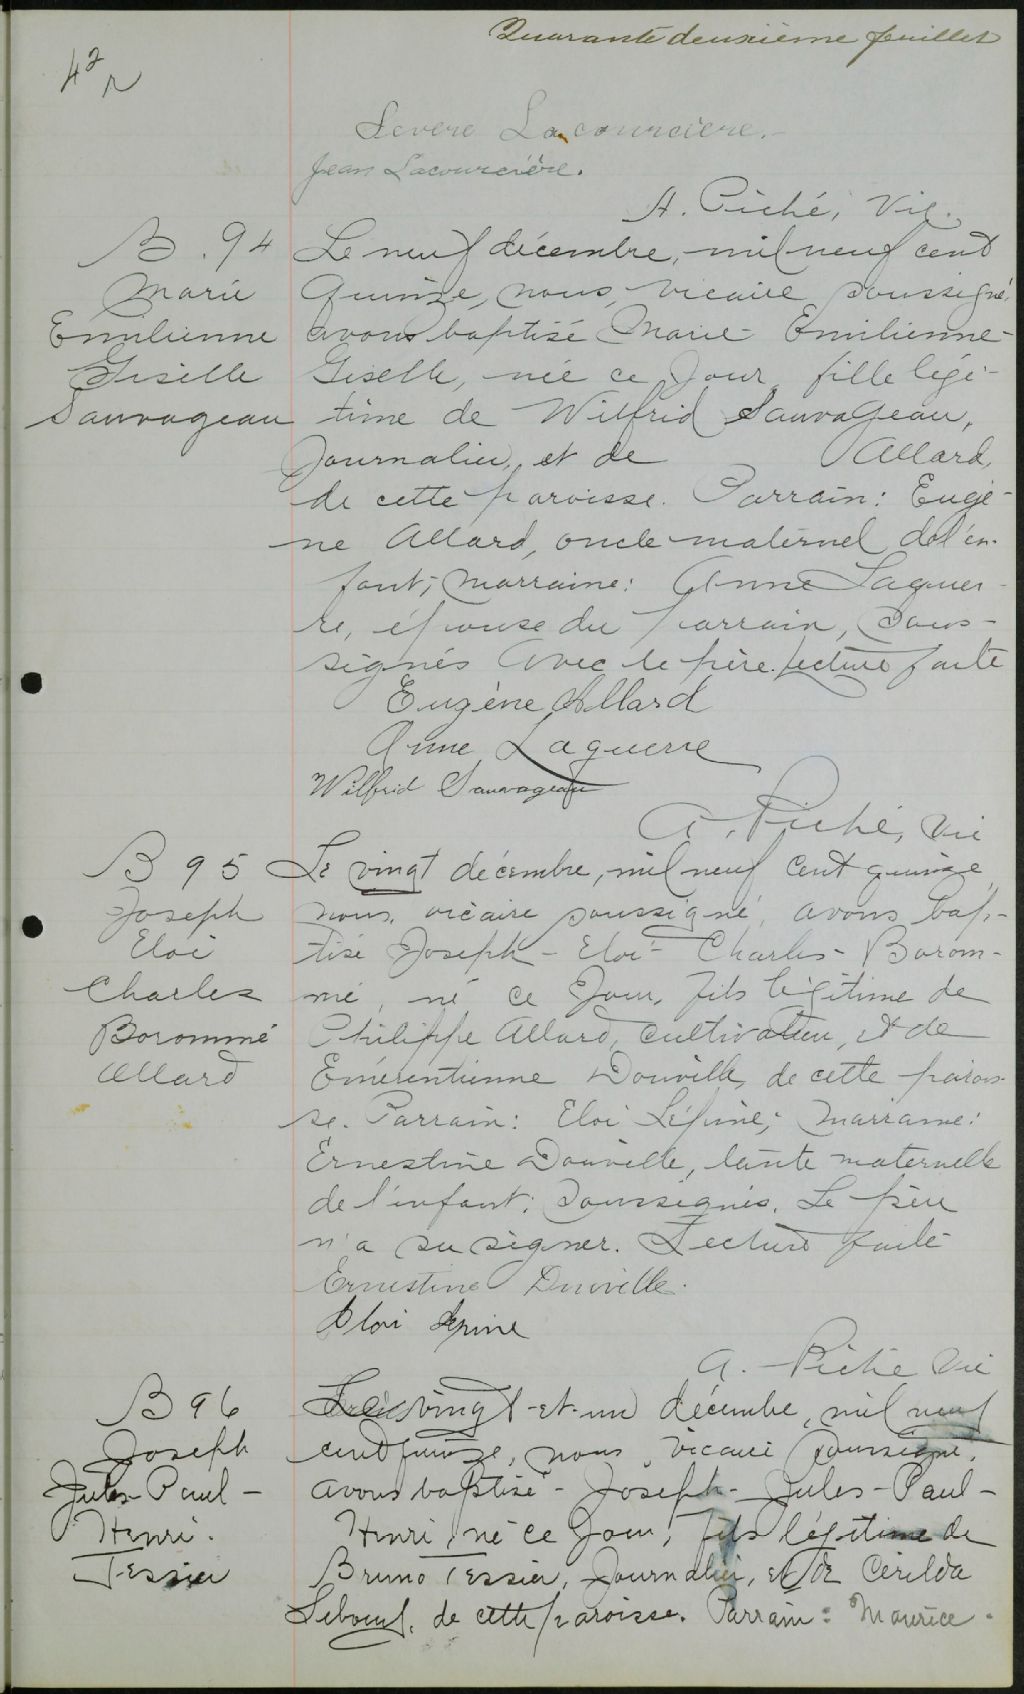 Quarante deuxième feuillet
42
r
Severe Lacourcière.-
Jean Lacourcière.
A. Piché, Vic.
B. 94
Marie
Emilienne
Giselle
Sauvageau
Le neuf décembre, mil neuf cent
quinze, nous, vicaire soussigné,
avons baptisé Marie-Emilienne-
Giselle, née ce jour, fille légi-
time de Wilfrid Sauvageau,
Journalier, et de Allard,
de cette paroisse. Parrain: Eugè-
ne Allard, oncle maternel de l'en-
fant; marraine: Anne Laguer-
re, épouse du parrain, sous-
signés avec le père. Lecture faite
Eugène Allard
Anne Laguerre
Wilfrid Sauvageau
A. Piché, Vic
B 95
Joseph
Eloi
Charles
Borommé
Allard
Le vingt décembre, mil neuf cent quinze,
nous, vicaire soussigné, avons bap-
tisé Joseph-Eloi-Charles-Borom-
mé, né ce jour, fils légitime de
Philippe Allard, cultivateur, et de
Emérentienne Douville, de cette parois-
se. Parrain: Eloi Lépine; marraine:
Ernestine Douville, tante maternelle
de l'enfant; soussignés. Le père
n'a su signer. Lecture faite
Ernestine Douville.
Eloi Lépine
A. Piché Vic
B 96
Joseph
Jules-Paul-
Henri.
Tessier
Le vingt-et-un décembre, mil neuf
cent quinze, nous, vicaire soussigné,
avons baptisé-Joseph-Jules-Paul-
Henri, né ce jour, fils légitime de
Bruno Tessier, Journalier, et de Cérilda
Leboeuf, de cette paroisse. Parrain: Maurice